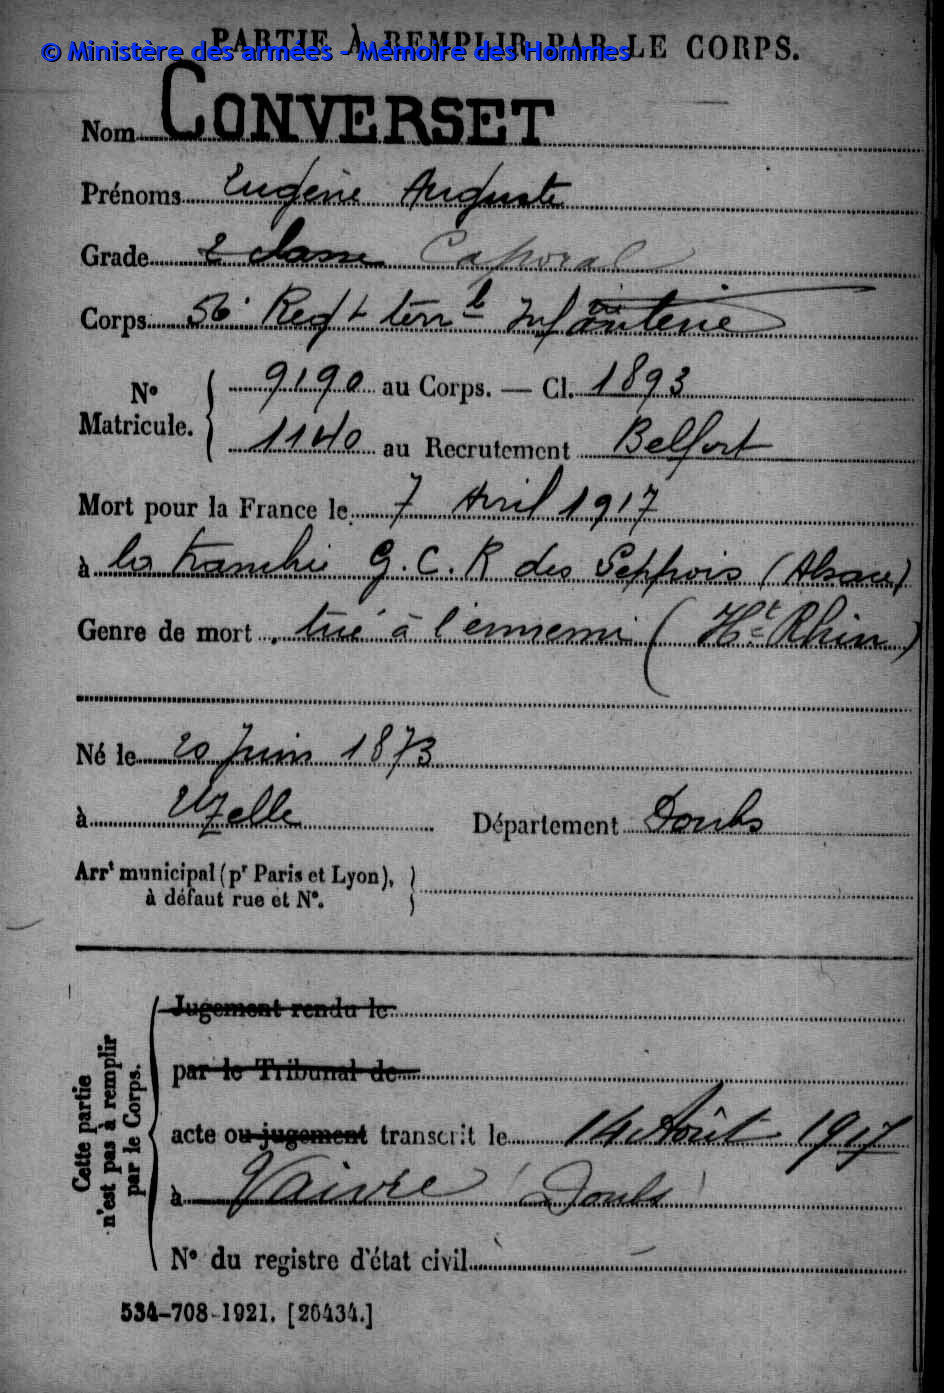 PARTIE À REMPLIR PAR LE CORPS.
© Ministère des armées - Mémoire des Hommes
Nom CONVERSET
Prénoms Eugène Auguste
Grade 2 classe Caporal
Corps 56e Regt terr le Infanterie
No Matricule. 9190 au Corps. — Cl. 1893
1140 au Recrutement Belfort
Mort pour la France le 7 Avril 1917
à la tranchée G.C.R des Seppois (Alsace)
Genre de mort tué à l'ennemi (Ht Rhin)
Né le 20 Juin 1873
à Uzelle Département Doubs
Arrt municipal (pr Paris et Lyon),
à défaut rue et No.
Cette partie
n'est pas à remplir
par le Corps.
Jugement rendu le
par le Tribunal de
acte ou jugement transcrit le 14 Août 1917
à Vaivre (Doubs)
No du registre d'état civil
534-708-1921. [26434.]